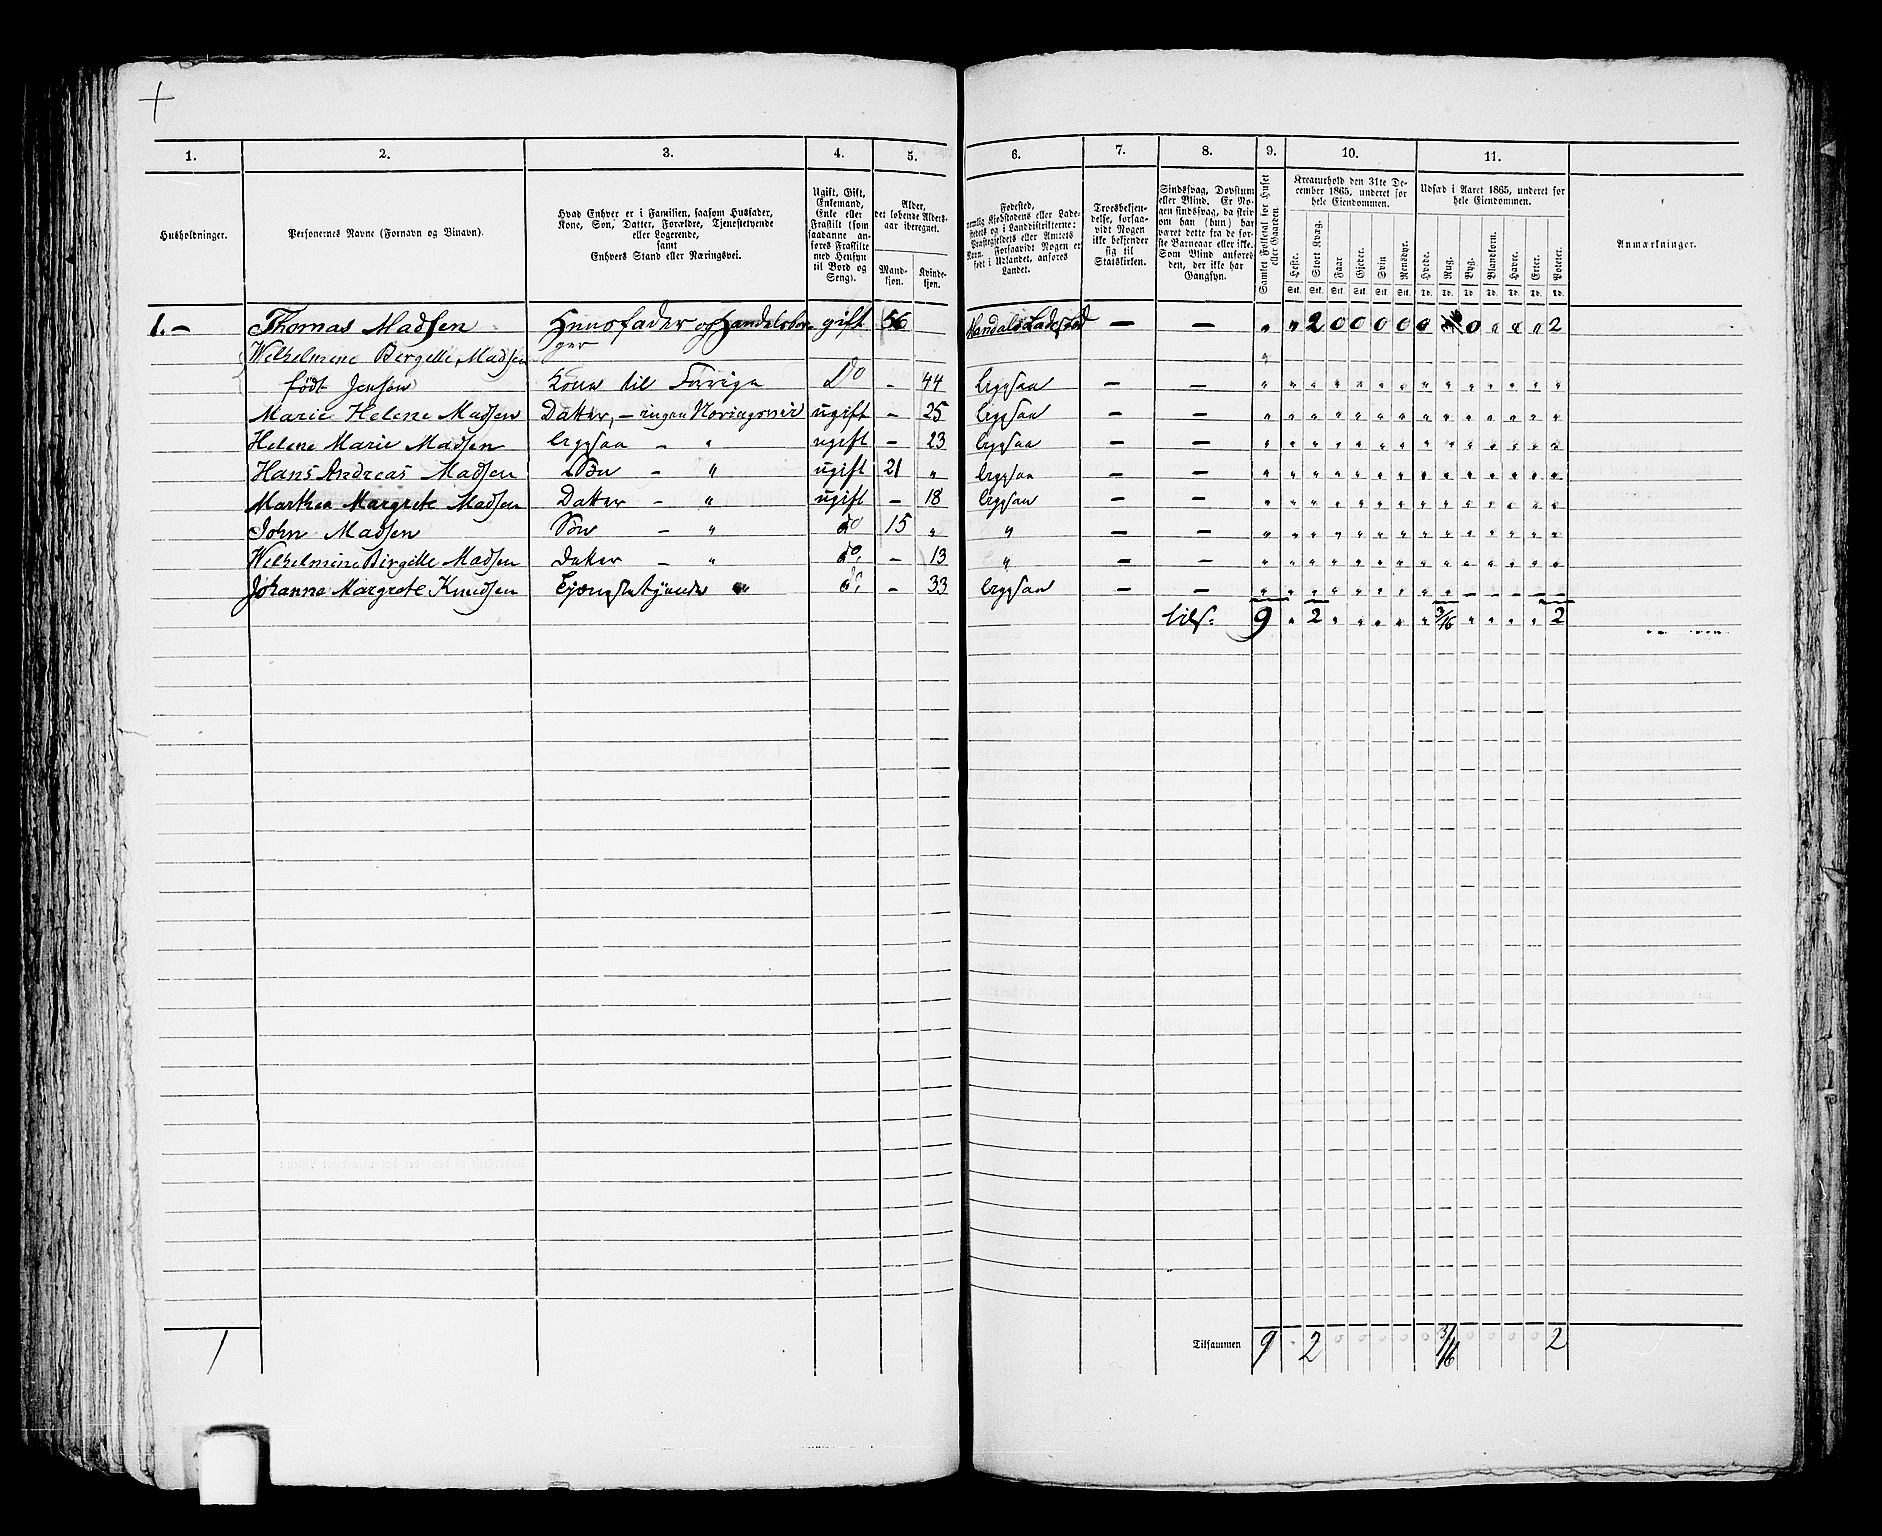 1. 2. 3. 4. 5. 6. 7. 8. 9. 10. 11.
Husholdninger.
Personernes Navne (Fornavn og Binavn).
Hvad Enhver er i Familien, saasom Husfader,
Kone, Søn, Datter, Forældre, Tjenestetyende
eller Logerende,
samt
Enhvers Stand eller Næringsvei.
Ugift, Gift,
Enkemand,
Enke eller
Fraskilt (som
saadanne an-
føres Fraskilte
med Hensyn
til Bord og
Seng).
Alder,
det løbende Alders-
aar iberegnet.
Mand-
kjøn.
Kvinde-
kjøn.
Fødested,
nemlig Kjøbstadens eller Lade-
stedets og i Landdistrikterne:
Præstegjeldets eller Annexets
Navn. Forsaavidt Nogen er
født i Udlandet, anføres
Landet.
Troesbekjen-
delse, forsaa-
vidt Nogen
ikke bekjender
sig til
Statskirken.
Sindssvag, Døvstum
eller Blind. Er No-
gen sindssvag, da skriv
om han (hun) har
været dette fra de før-
ste Barneaar eller ikke.
Som Blind anføres
den, der ikke har
Gangsyn.
Samlet Folketal for Huset
eller Gaarden.
Kreaturhold den 31te De-
cember 1865, underet for
hele Eiendommen.
Heste. Stort Kvæg. Faar Gjeder. Svin Rensdyr.
Stk. Stk. Stk. Stk. Stk. Stk.
Udsæd i Aaret 1865, underet for
hele Eiendommen.
Hvede. Rug. Byg. Blandkorn. Havre. Erter. Poteter.
Td. Td. Td. Td. Td. Td. Td.
Anmærkninger.
1. – Thomas Madsen Huusfader og Handelsbor- gift 56 Mandals Ladested – – „ „ 2 0 0 0 0 0 0 „ „ „ 2
Wilhelmine Bergitte Madsen ger
født Jensen Kone til Forrige Do – 44 ligesaa – –
Marie Helene Madsen Datter, – ingen Næringsvei ugift – 25 ligesaa – –
Helene Marie Madsen ligesaa – „ ugift – 23 ligesaa – –
Hans Andreas Madsen Søn – „ ugift 21 „ ligesaa – –
Marthea Margrete Madsen Datter – „ ugift – 18 ligesaa – –
John Madsen Søn – „ do 15 „ „ – –
Wilhelmine Birgitte Madsen Datter – „ do – 13 „ – –
Johanne Margrete Knudsen Tjenestetyende „ do – 33 ligesaa – –
tils. 9 „ 2 „ „ „ „ „ 3/16 „ „ „ „ 2
1 Tilsammen 9 . 2 0 0 0 0 0 3/16 0 0 0 0 2